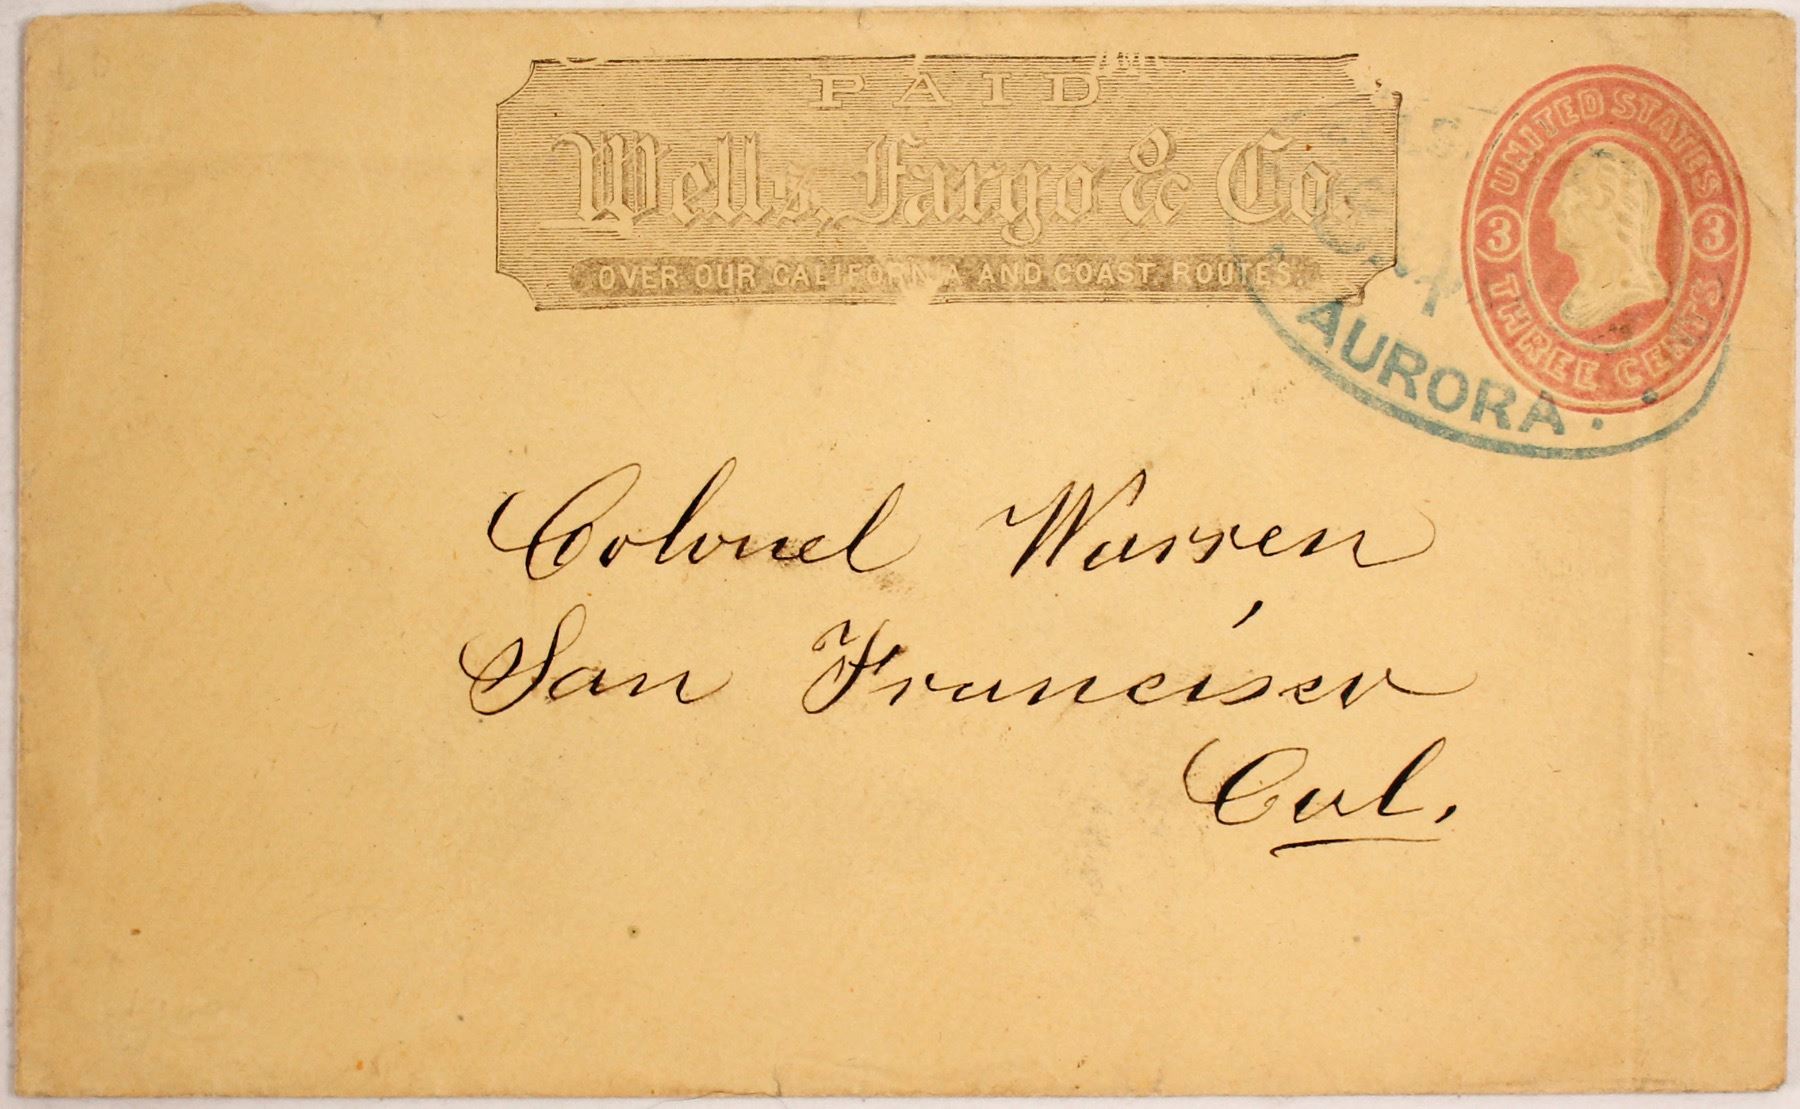 PAID
Wells, Fargo & Co.
OVER OUR CALIFORNIA AND COAST ROUTES.
UNITED STATES
3 3
THREE CENTS
AURORA
Colonel Warren
San Francisco
Cal.